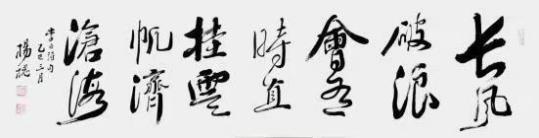 长风
破浪
會有
時直
挂雲
帆濟
滄海
李白詩句
乙巳三月
楊